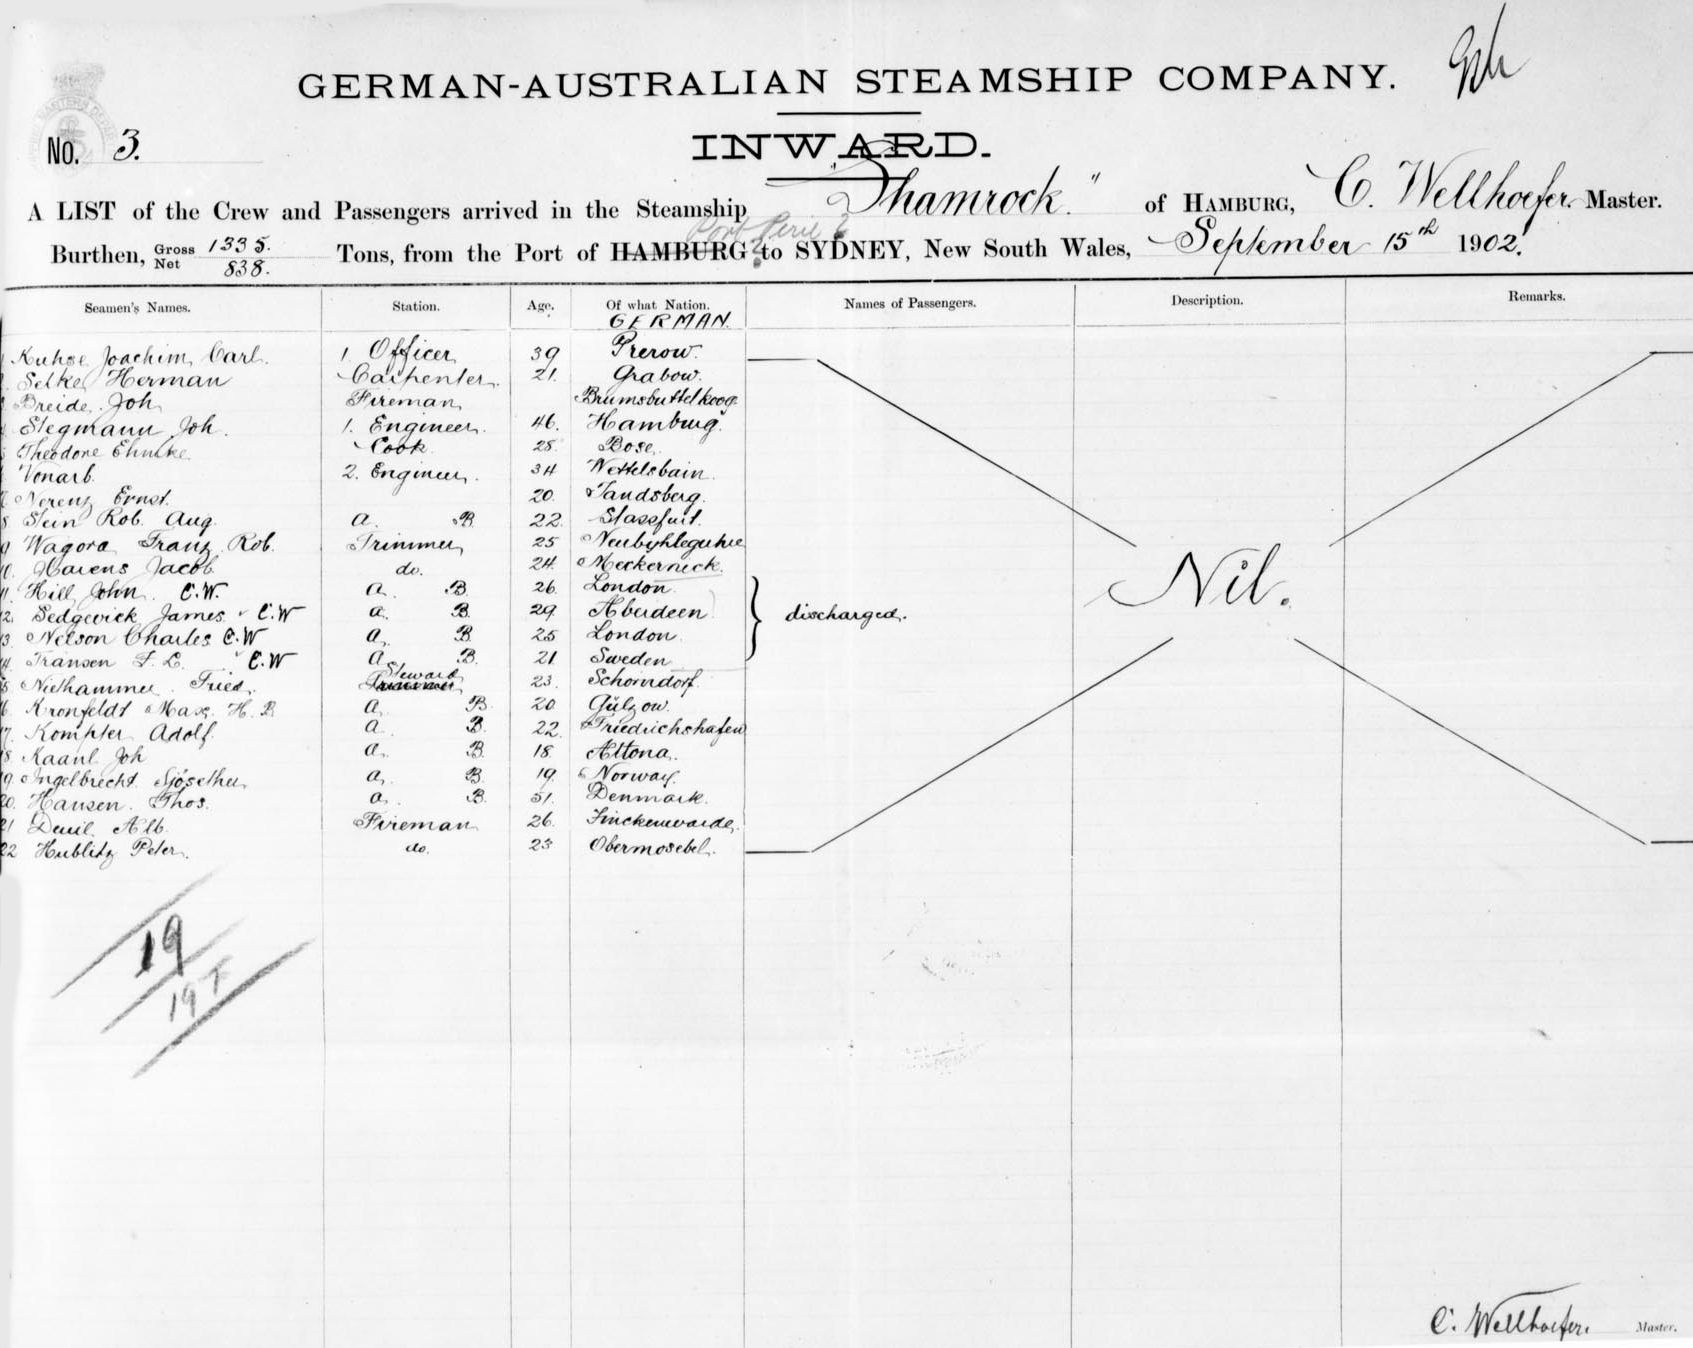 GERMAN-AUSTRALIAN STEAMSHIP COMPANY.
No. 3.
INWARD.
A LIST of the Crew and Passengers arrived in the Steamship "Shamrock." of HAMBURG, C. Wellhoefer. Master.
Burthen, Gross 1335. Net 838. Tons, from the Port of HAMBURG to SYDNEY, New South Wales, September 15th 1902.
Seamen's Names. Station. Age. Of what Nation. Names of Passengers. Description. Remarks.
GERMAN.
Kuhse Joachim, Carl. 1. Officer 39 Prerow.
Selke Herman Carpenter. 21. Grabow.
3 Breide. Joh Fireman Brunsbuttelkoog.
Stegmann Joh. 1. Engineer. 46. Hamburg.
Theodore Ehmke Cook. 28. Bose.
Vonarb. 2. Engineer. 34
Nerenz Ernst. 20.
8. Stein Rob. Aug. A. B. 22. Stassfurt.
9 Wagora Franz Rob. Trimmer 25
10. Harens Jacob do. 24. Meckernick.
11. Hill John. C.W. A. B. 26. London.
12. Sedgevick James C.W A. B. 29 Aberdeen
13 Nelson Charles C.W A. B. 25 London. discharged.
14. Transen F. L. C.W A. B. 21. Sweden
Nil.
15 Niethammer. Fried. Steward 23. Schorndorf.
16 Kronfeldt Max. H. B A. B. 20 Gülzow.
17. Kompfer Adolf. A. B. 22. Friedrichshafen
18 Kaanl Joh A. B. 18. Altona.
19 Ingelbrecht A. B. 19. Norway.
20. Hansen. Thos. A. B. 51. Denmark.
21 Alb. Fireman 26. Finckenwarde.
22 Hublitz Peter. do. 23 Obermosebel.
19
19 F
C. Wellhoefer. Master.